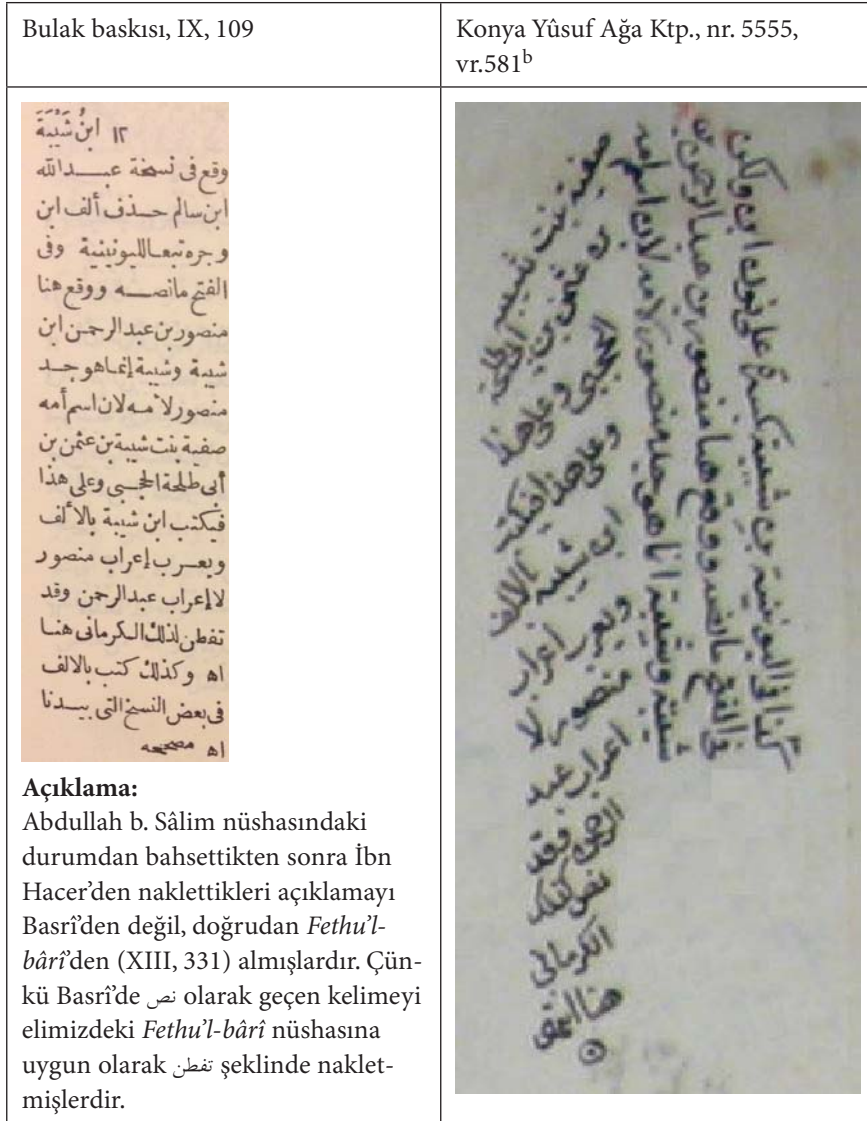 Bulak baskısı, IX, 109
Konya Yûsuf Ağa Ktp., nr. 5555,
vr.581b
١٢ ابنُ شَيْبَةَ
وقع فى نسخة عبــد الله
ابن سالم حــذف ألف ابن
وجره تبعا لليونينية وفى
الفتح مانصــه ووقع هنا
منصور بن عبد الرحمن ابن
شيبة وشيبة إنما هو جــد
منصور لأمه لان اسم أمه
صفية بنت شيبة بن عثمن بن
أبى طلحة الحجــبى وعلى هذا
فيكتب ابن شيبة بالألف
ويعــرب إعراب منصور
لا إعراب عبد الرحمن وقد
تفطن لذلك الكرمانى هنــا
اه وكذلك كتب بالالف
فى بعض النسخ التى بيــدنا
اه مصححه
Açıklama:
Abdullah b. Sâlim nüshasındaki
durumdan bahsettikten sonra İbn
Hacer’den naklettikleri açıklamayı
Basrî’den değil, doğrudan Fethu’l-
bârî’den (XIII, 331) almışlardır. Çün-
kü Basrî’de نص olarak geçen kelimeyi
elimizdeki Fethu’l-bârî nüshasına
uygun olarak تفطن şeklinde naklet-
mişlerdir.
كذا فى اليونينية بن شيبة على نون ابن ولكن
فى الفتح ما نصه ووقع هنا منصور بن عبد الرحمن بن
شيبة وشيبة انما هو جد منصور لامه لان اسم امه
صفية بنت شيبة
بن عثمن بن
الحجبى وعلى هذا
وعلى هذا فيكتب
ابن شيبة بالالف
ويعرب اعراب
منصور لا
اعراب عبد
الرحمن وقد
نص لذلك
الكرمانى
هنا انتهى